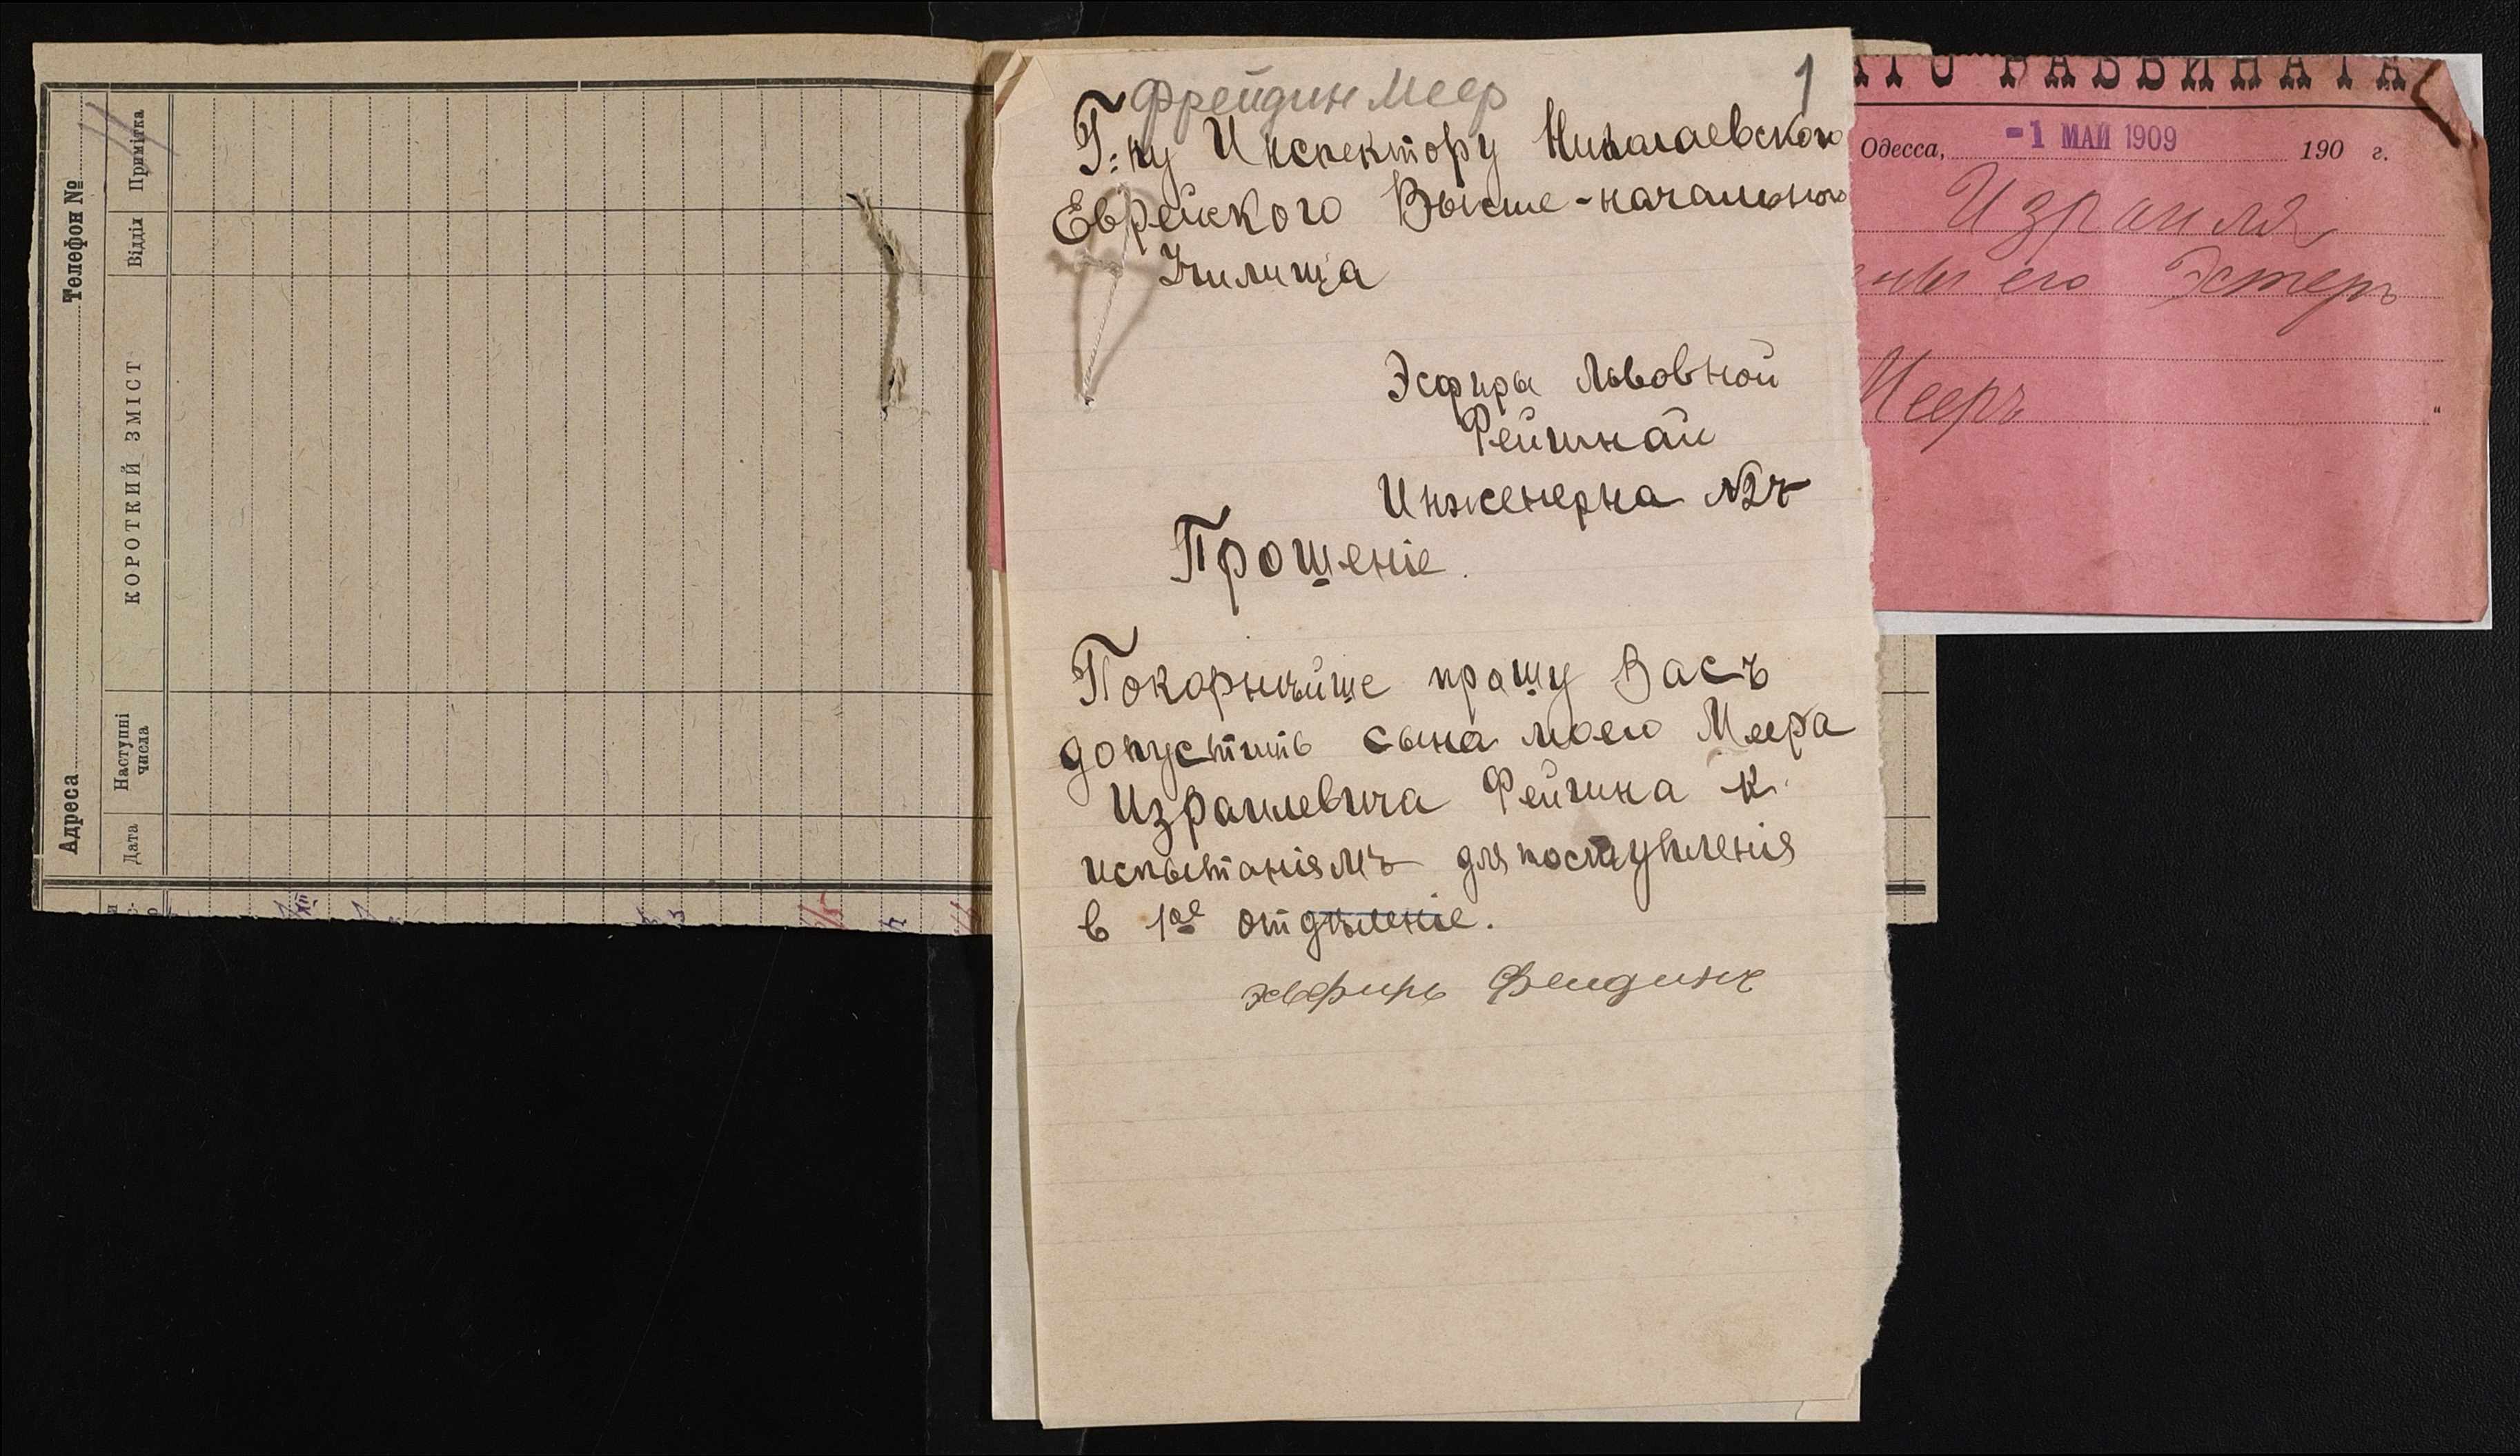 Телефон №
Адреса
Примітка
Відділ
КОРОТКИЙ ЗМІСТ
Наступні числа
Дата
Фрейдин Меер
1
Г:ну Инспектору Николаевского
Еврейского Высше-начальнаго
Училища
Эсфиры Львовной
Фейгиной
Инженерна №
Прошеніе.
Покорнѣйше прошу Васъ
допустить сына моего Меера
Израилевича Фейгина к
испытаніямъ для поступленія
в 1ое отдѣленіе.
Эсфирь Фейдинъ
РАВВИНАТА
Одесса, -1 МАЙ 1909 190 г.
Израиля
его Эстеръ
Мееръ "